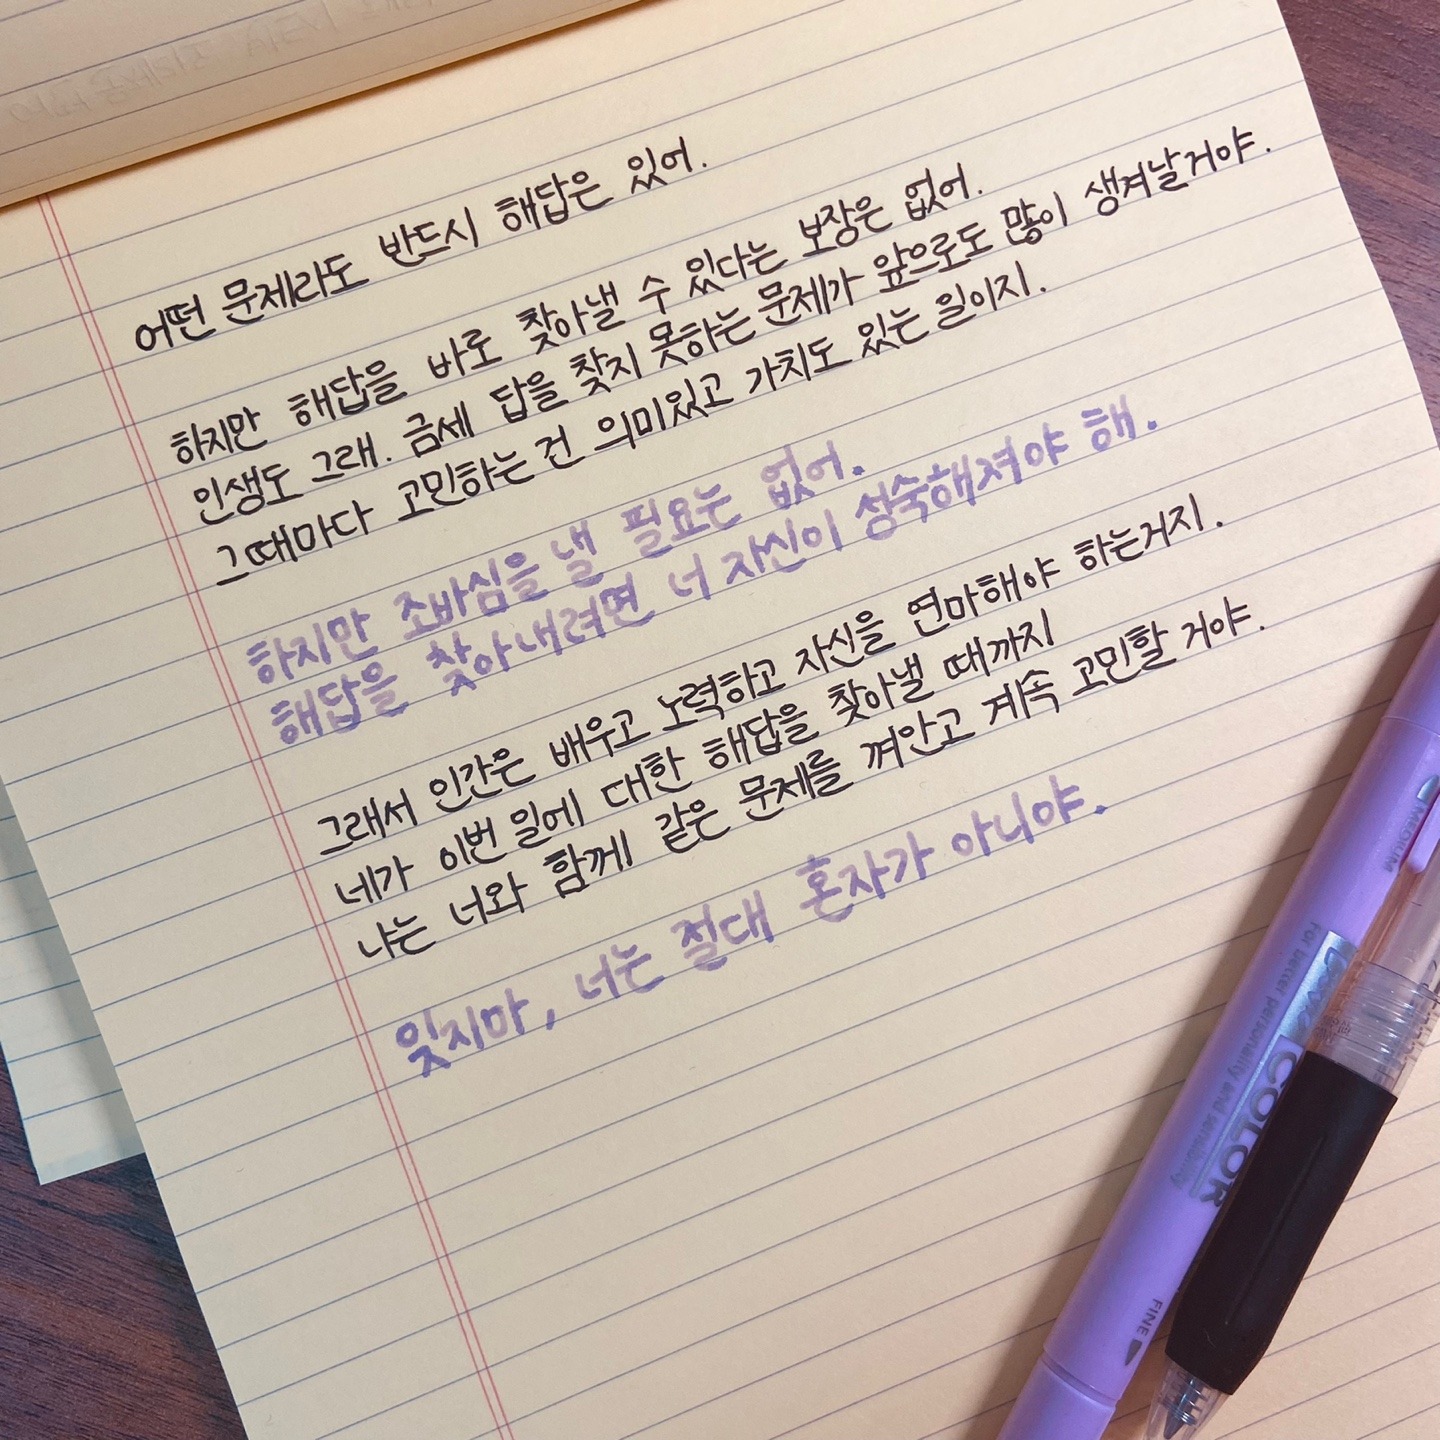 어떤 문제라도 반드시 해답은 있어.
하지만 해답을 바로 찾아낼 수 있다는 보장은 없어.
인생도 그래. 금세 답을 찾지 못하는 문제가 앞으로도 많이 생겨날거야.
그때마다 고민하는 건 의미있고 가치도 있는 일이지.
하지만 조바심을 낼 필요는 없어.
해답을 찾아내려면 너 자신이 성숙해져야 해.
그래서 인간은 배우고 노력하고 자신을 연마해야 하는거지.
네가 이번 일에 대한 해답을 찾아낼 때까지
나는 너와 함께 같은 문제를 껴안고 계속 고민할 거야.
잊지마, 너는 절대 혼자가 아니야.
MEDIUM
For better personality and sensibility
COLOR
FINE